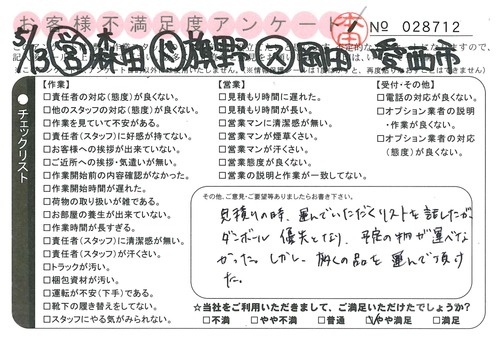 お客様不満足度アンケート
No 028712
5/13 営 森田 旗野 岡田 愛西市
チェックリスト
【作業】
□責任者の対応(態度)が良くない。
□他のスタッフの対応(態度)が良くない。
□作業を見ていて不安がある。
□責任者(スタッフ)に好感が持てない。
□お客様への挨拶が出来ていない。
□ご近所への挨拶・気遣いが無い。
□作業開始前の内容確認がなかった。
□作業開始時間が遅れた。
□荷物の取り扱いが雑である。
□お部屋の養生が出来ていない。
□作業時間が長すぎる。
□責任者(スタッフ)に清潔感が無い。
□責任者(スタッフ)が汗くさい。
□トラックが汚い。
□梱包資材が汚い。
□運転が不安(下手)である。
□靴下の履き替えをしてない。
□スタッフにやる気がみられない。
【営業】
□見積もり時間に遅れた。
□見積もり時間が長い。
□営業マンに清潔感が無い。
□営業マンが煙草くさい。
□営業マンが汗くさい。
□営業態度が良くない。
□営業の説明と作業が一致してない。
【受付・その他】
□電話の対応が良くない。
□オプション業者の説明
・作業が良くない。
□オプション業者の対応
(態度)が良くない。
その他、ご意見・ご要望等ありましたらお書き下さい。
見積りの時、運んでいただくリストを話したが、
ダンボール優先となり、予定の物が運べな
かった。しかし、多くの品を運んで頂け
た。
☆当社をご利用いただきまして、ご満足いただけたでしょうか?
□不満 □やや不満 □普通 □やや満足 □満足